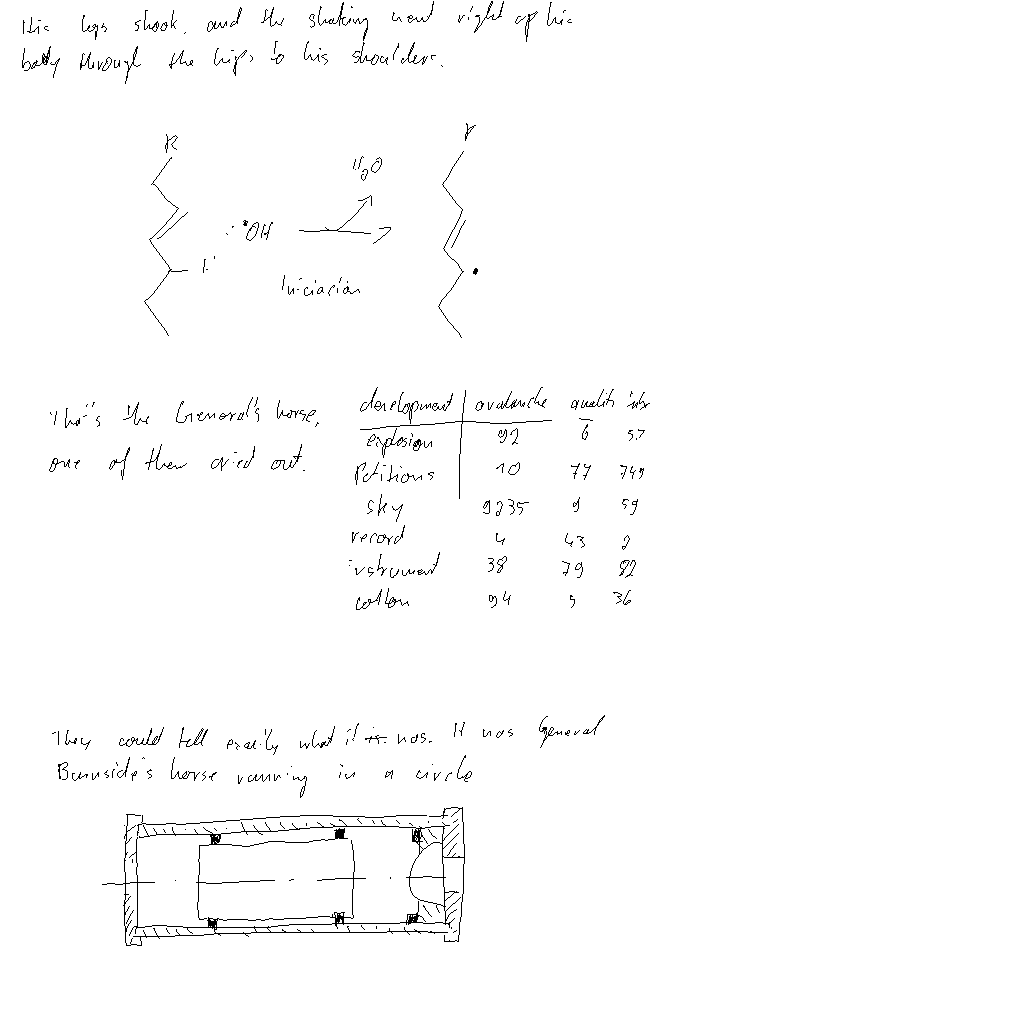 His legs shook, and the shaking went right up his
body through the hips to his shoulders.
R
R
H₂O
•OH
H
Iniciación
That's the General's horse,
one of them cried out.
development avalanche quality
explosion 92 6 57
Petitions 10 77 749
sky 9235 9 59
record 4 43 2
instrument 38 79 82
cotton 94 5 36
They could tell exactly what it was. It was General
Burnside's horse running in a circle